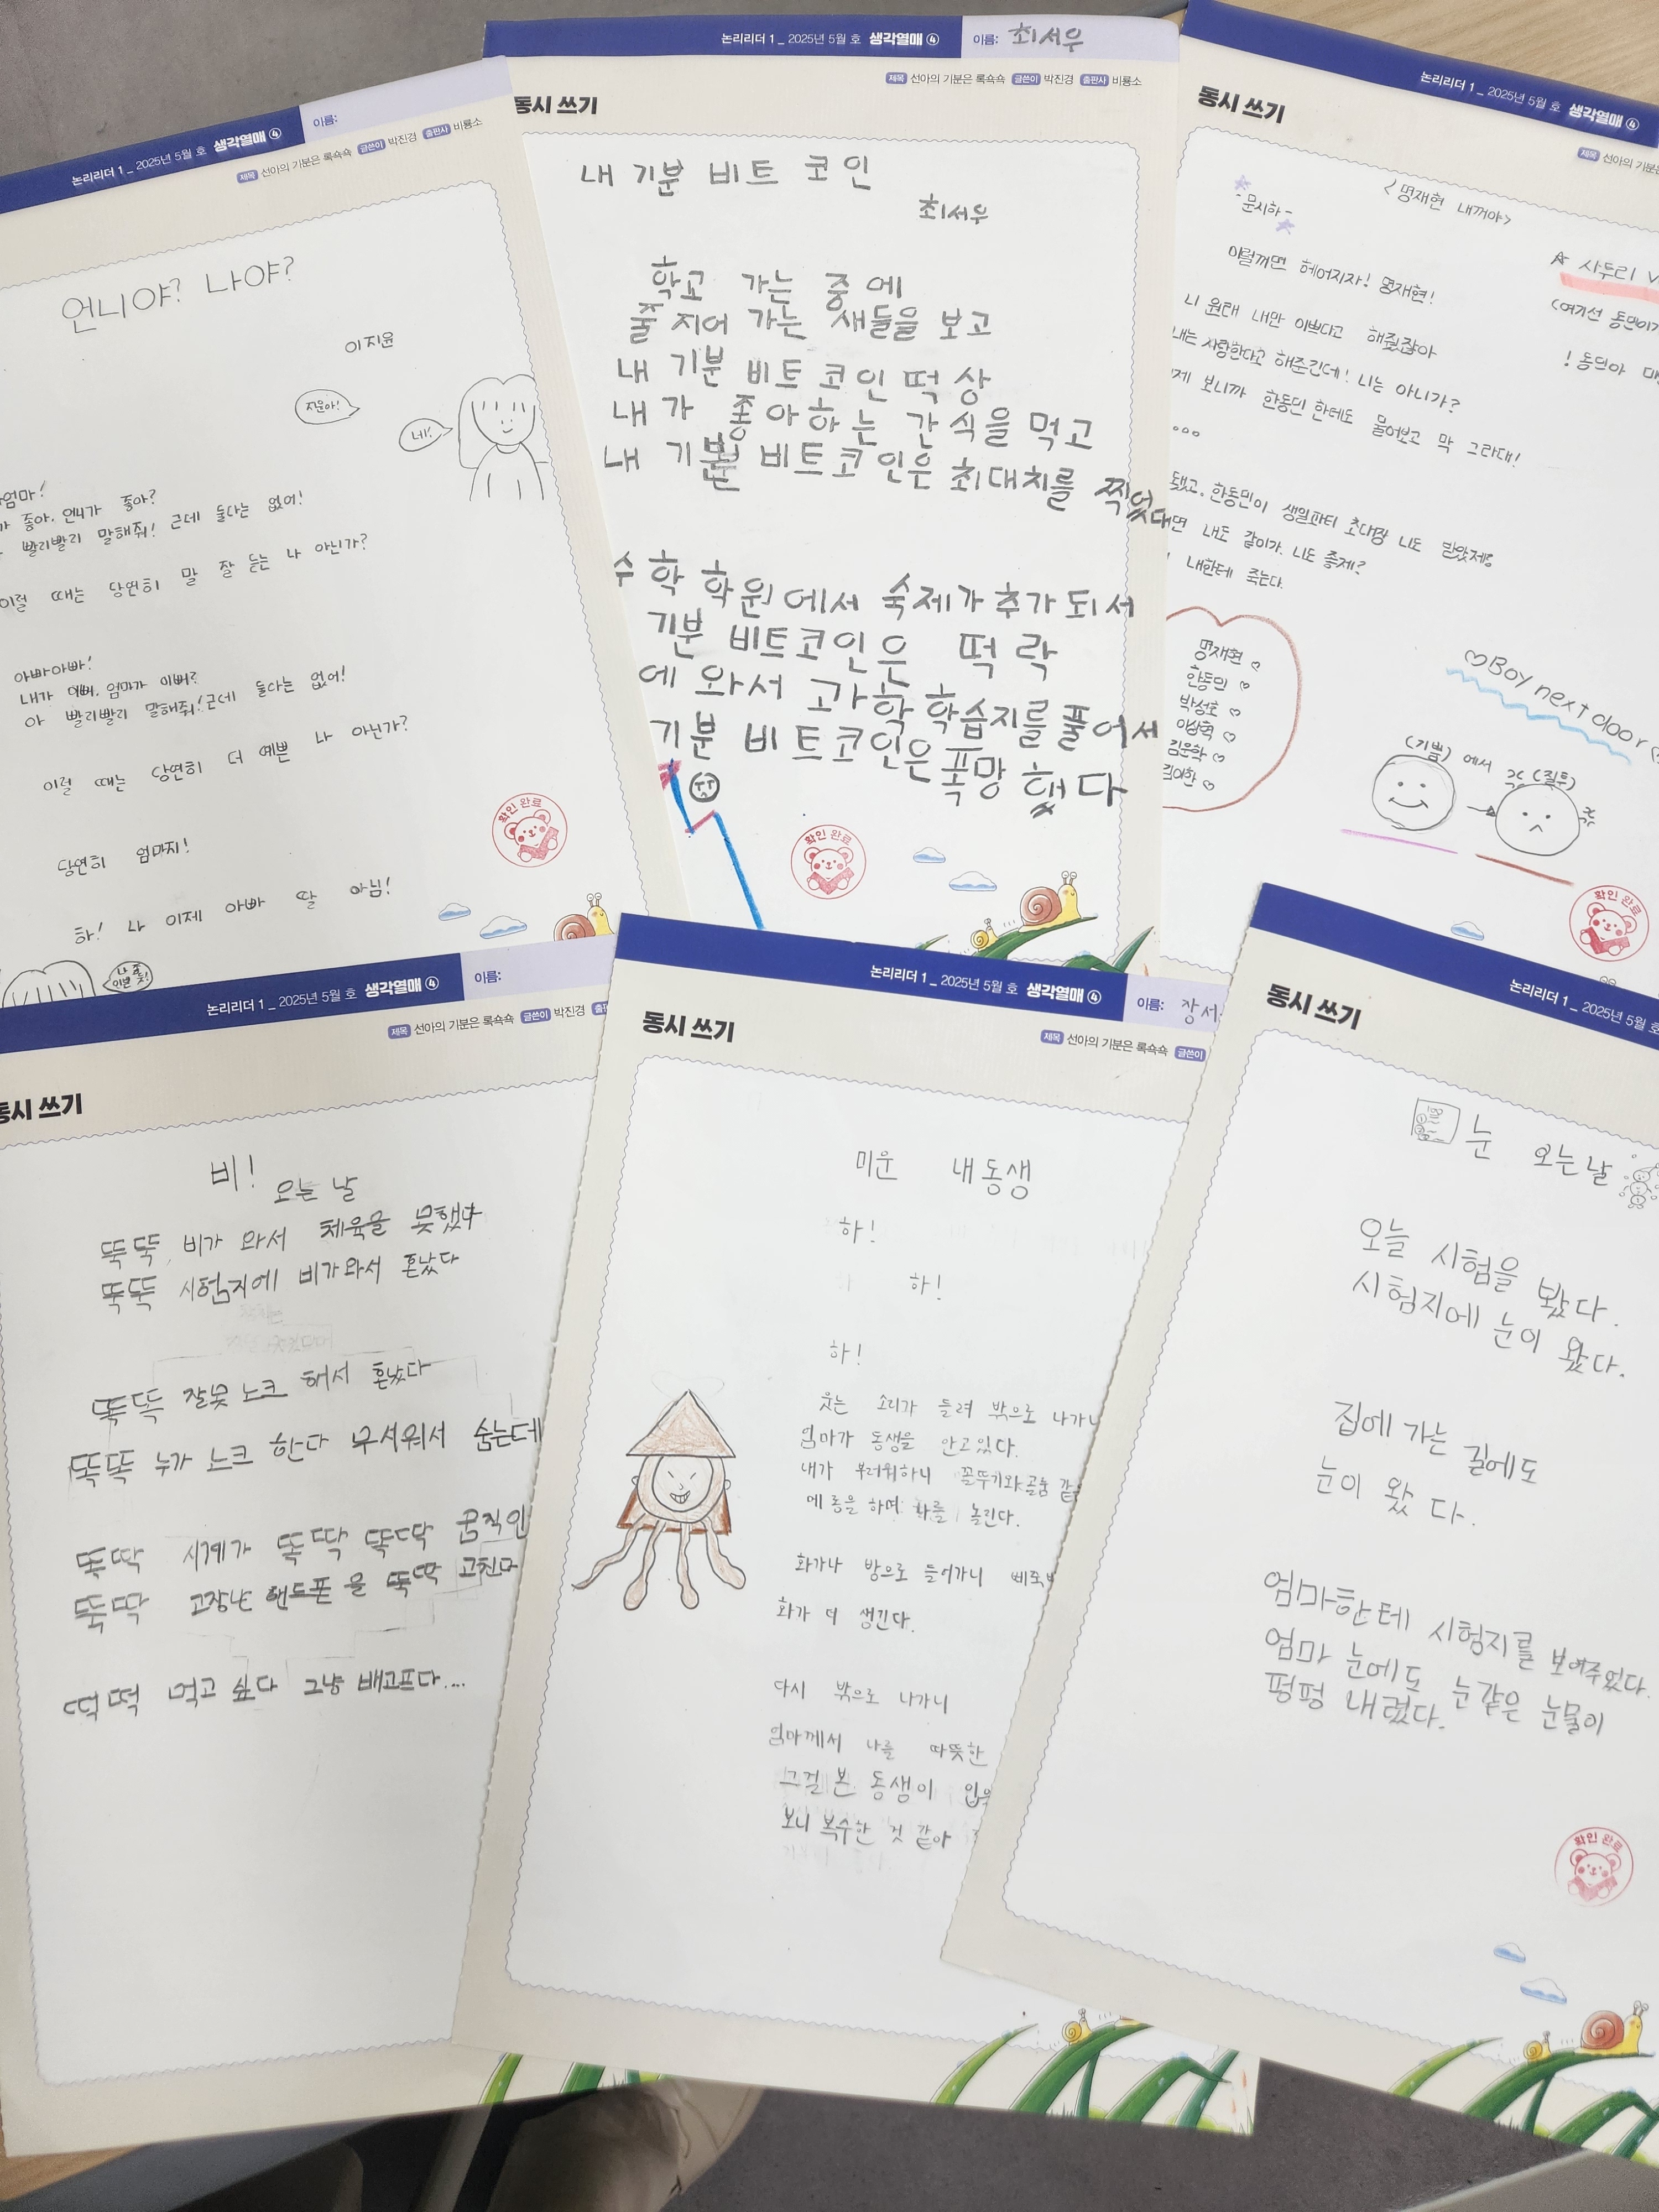 논리리더 1_ 2025년 5월 호 생각열매 ④ 이름:
제목 선아의 기분은 록쇽쇽 글쓴이 박진경 출판사 비룡소
언니야? 나야?
이지윤
지윤아!
네!
엄마!
좋아. 언니가 좋아?
빨리빨리 말해줘! 근데 둘다는 없어!
이럴 때는 당연히 말 잘 듣는 나 아닌가?
아빠아빠!
내가 예뻐. 엄마가 이뻐?
아 빨리빨리 말해줘! 근데 둘다는 없어!
이럴 때는 당연히 더 예쁜 나 아닌가?
당연히 엄마지!
하! 나 이제 아빠 딸 아님!
확인 완료
논리리더 1_ 2025년 5월 호 생각열매 ④ 이름: 최서우
제목 선아의 기분은 록쇽쇽 글쓴이 박진경 출판사 비룡소
동시 쓰기
내 기분 비트 코인
최서우
학교 가는 중에
줄 지어 가는 새들을 보고
내 기분 비트 코인 떡 상
내가 좋아하는 간식을 먹고
내 기분 비트코인은 최대치를 찍었다
수학 학원에서 숙제가 추가 되서
기분 비트코인은 떡 락
에 와서 과학 학습지를 풀어서
기분 비트코인은 폭망 했다
확인 완료
논리리더 1_ 2025년 5월 호 생각열매 ④
제목 선아의 기분은
동시 쓰기
<명재현 내꺼야>
-문시하-
이럴꺼면 헤어지자! 명재현!
니 원래 내만 이쁘다고 해줬잖아
내는 사랑한다고 해준긴데! 니는 아니가?
보니까 한동민 한테도 물어보고 막 그라대!
...
됐고. 한동민이 생일파티 초대장 니도 받았제?
내도 같이가. 니도 좋제?
내한테 죽는다.
☆ 사투리 V
(여기선 동민이가
! 동민아
명재현 ♡
한동민 ♡
박성호 ♡
이상혁 ♡
김운학 ♡
김이한 ♡
♡Boy next door
(기쁨) 에서 (질투)
확인 완료
논리리더 1_ 2025년 5월 호 생각열매 ④ 이름:
제목 선아의 기분은 록쇽쇽 글쓴이 박진경
동시 쓰기
비! 오는 날
뚝뚝 비가 와서 체육을 못했다
뚝뚝 시험지에 비가와서 혼났다
똑똑 잘못 노크 해서 혼났다
똑똑 누가 노크 한다 무서워서 숨는데
똑딱 시계가 똑딱 똑딱 움직인
뚝딱 고장난 핸드폰을 뚝딱 고친다
떡 떡 먹고 싶다 그냥 배고프다....
논리리더 1_ 2025년 5월 호 생각열매 ④ 이름: 장서
제목 선아의 기분은 록쇽쇽 글쓴이
동시 쓰기
미운 내동생
하!
하!
하!
웃는 소리가 들려 밖으로 나가니
엄마가 동생을 안고있다.
내가 부러워하니 꼴뚜기와
메롱을 하며 화를 놀린다.
화가나 방으로 들어가니
화가 더 생긴다.
다시 밖으로 나가니
엄마께서 나를 따뜻한
그걸 본 동생이
보니 복수한 것 같아
논리리더 1_ 2025년 5월 호
동시 쓰기
눈 오는날
오늘 시험을 봤다.
시험지에 눈이 왔다.
집에 가는 길에도
눈이 왔다.
엄마한테 시험지를 보여주었다.
엄마 눈에도 눈같은 눈물이
펑펑 내렸다.
확인 완료